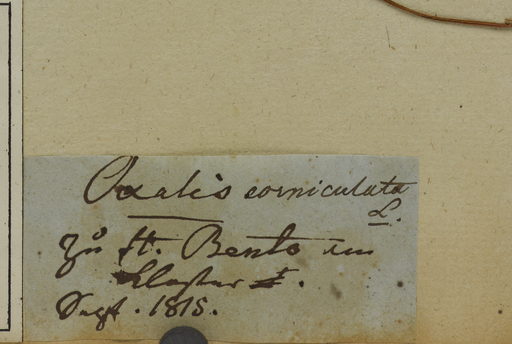 Oxalis corniculata
L.
Zu St. Bento im
Kloster
Sept. 1815.